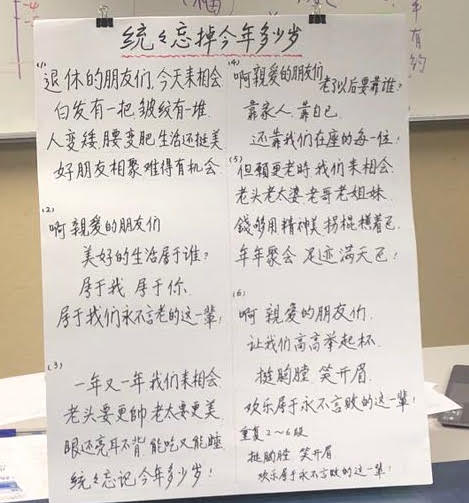 统々忘掉今年多少岁
(1)
退休的朋友们,今天来相会
白发有一把 皱纹有一堆
人变矮,腰变肥 生活还挺美
好朋友相聚难得有机会
(2)
啊 亲爱的朋友们
美好的生活属于谁?
属于我 属于你
属于我们永不言老的这一辈!
(3)
一年又一年 我们来相会
老头要更帅 老太要更美
眼还亮耳不背 能吃又能睡
统々忘记今年多少岁!
(4)
啊 親爱的朋友们
老了以后要靠谁?
靠家人 靠自己
还靠我们在座的每一位!
(5)
但願更老時 我们来相会
老头老太婆 老哥老姐妹
錢够用精神美 拐棍横着飞
年年聚会 足迹满天飞!
(6)
啊 親爱的朋友们
让我们高高举起杯
挺胸膛 笑开眉
欢乐属于永不言败的这一辈!
重复2~6段
挺胸膛 笑开眉
欢乐属于永不言败的这一辈!
有
约